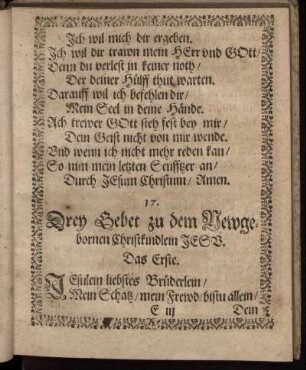 Ich wil mich dir ergeben.
Ich wil dir trawn mein HErr vnd GOtt /
Denn du verlest in kener noth /
Der deiner Hülff thut warten.
Darauff wil ich befehlen dir /
Mein Seel in deine Hände.
Ach trewer GOtt steh fest bey mir /
Dein Geist nicht von mir wende.
Vnd wenn ich nicht mehr reden kan /
So nim mein letzten Seufftzer an /
Durch JEsum Christum / Amen.
17.
Drey Gebet zu dem Newge-
bornen Christkindlein JESV.
Das Erste.
JEsulein liebstes Brüderlein /
Mein Schatz / mein Frewd / bistu allein /
E iij Dein